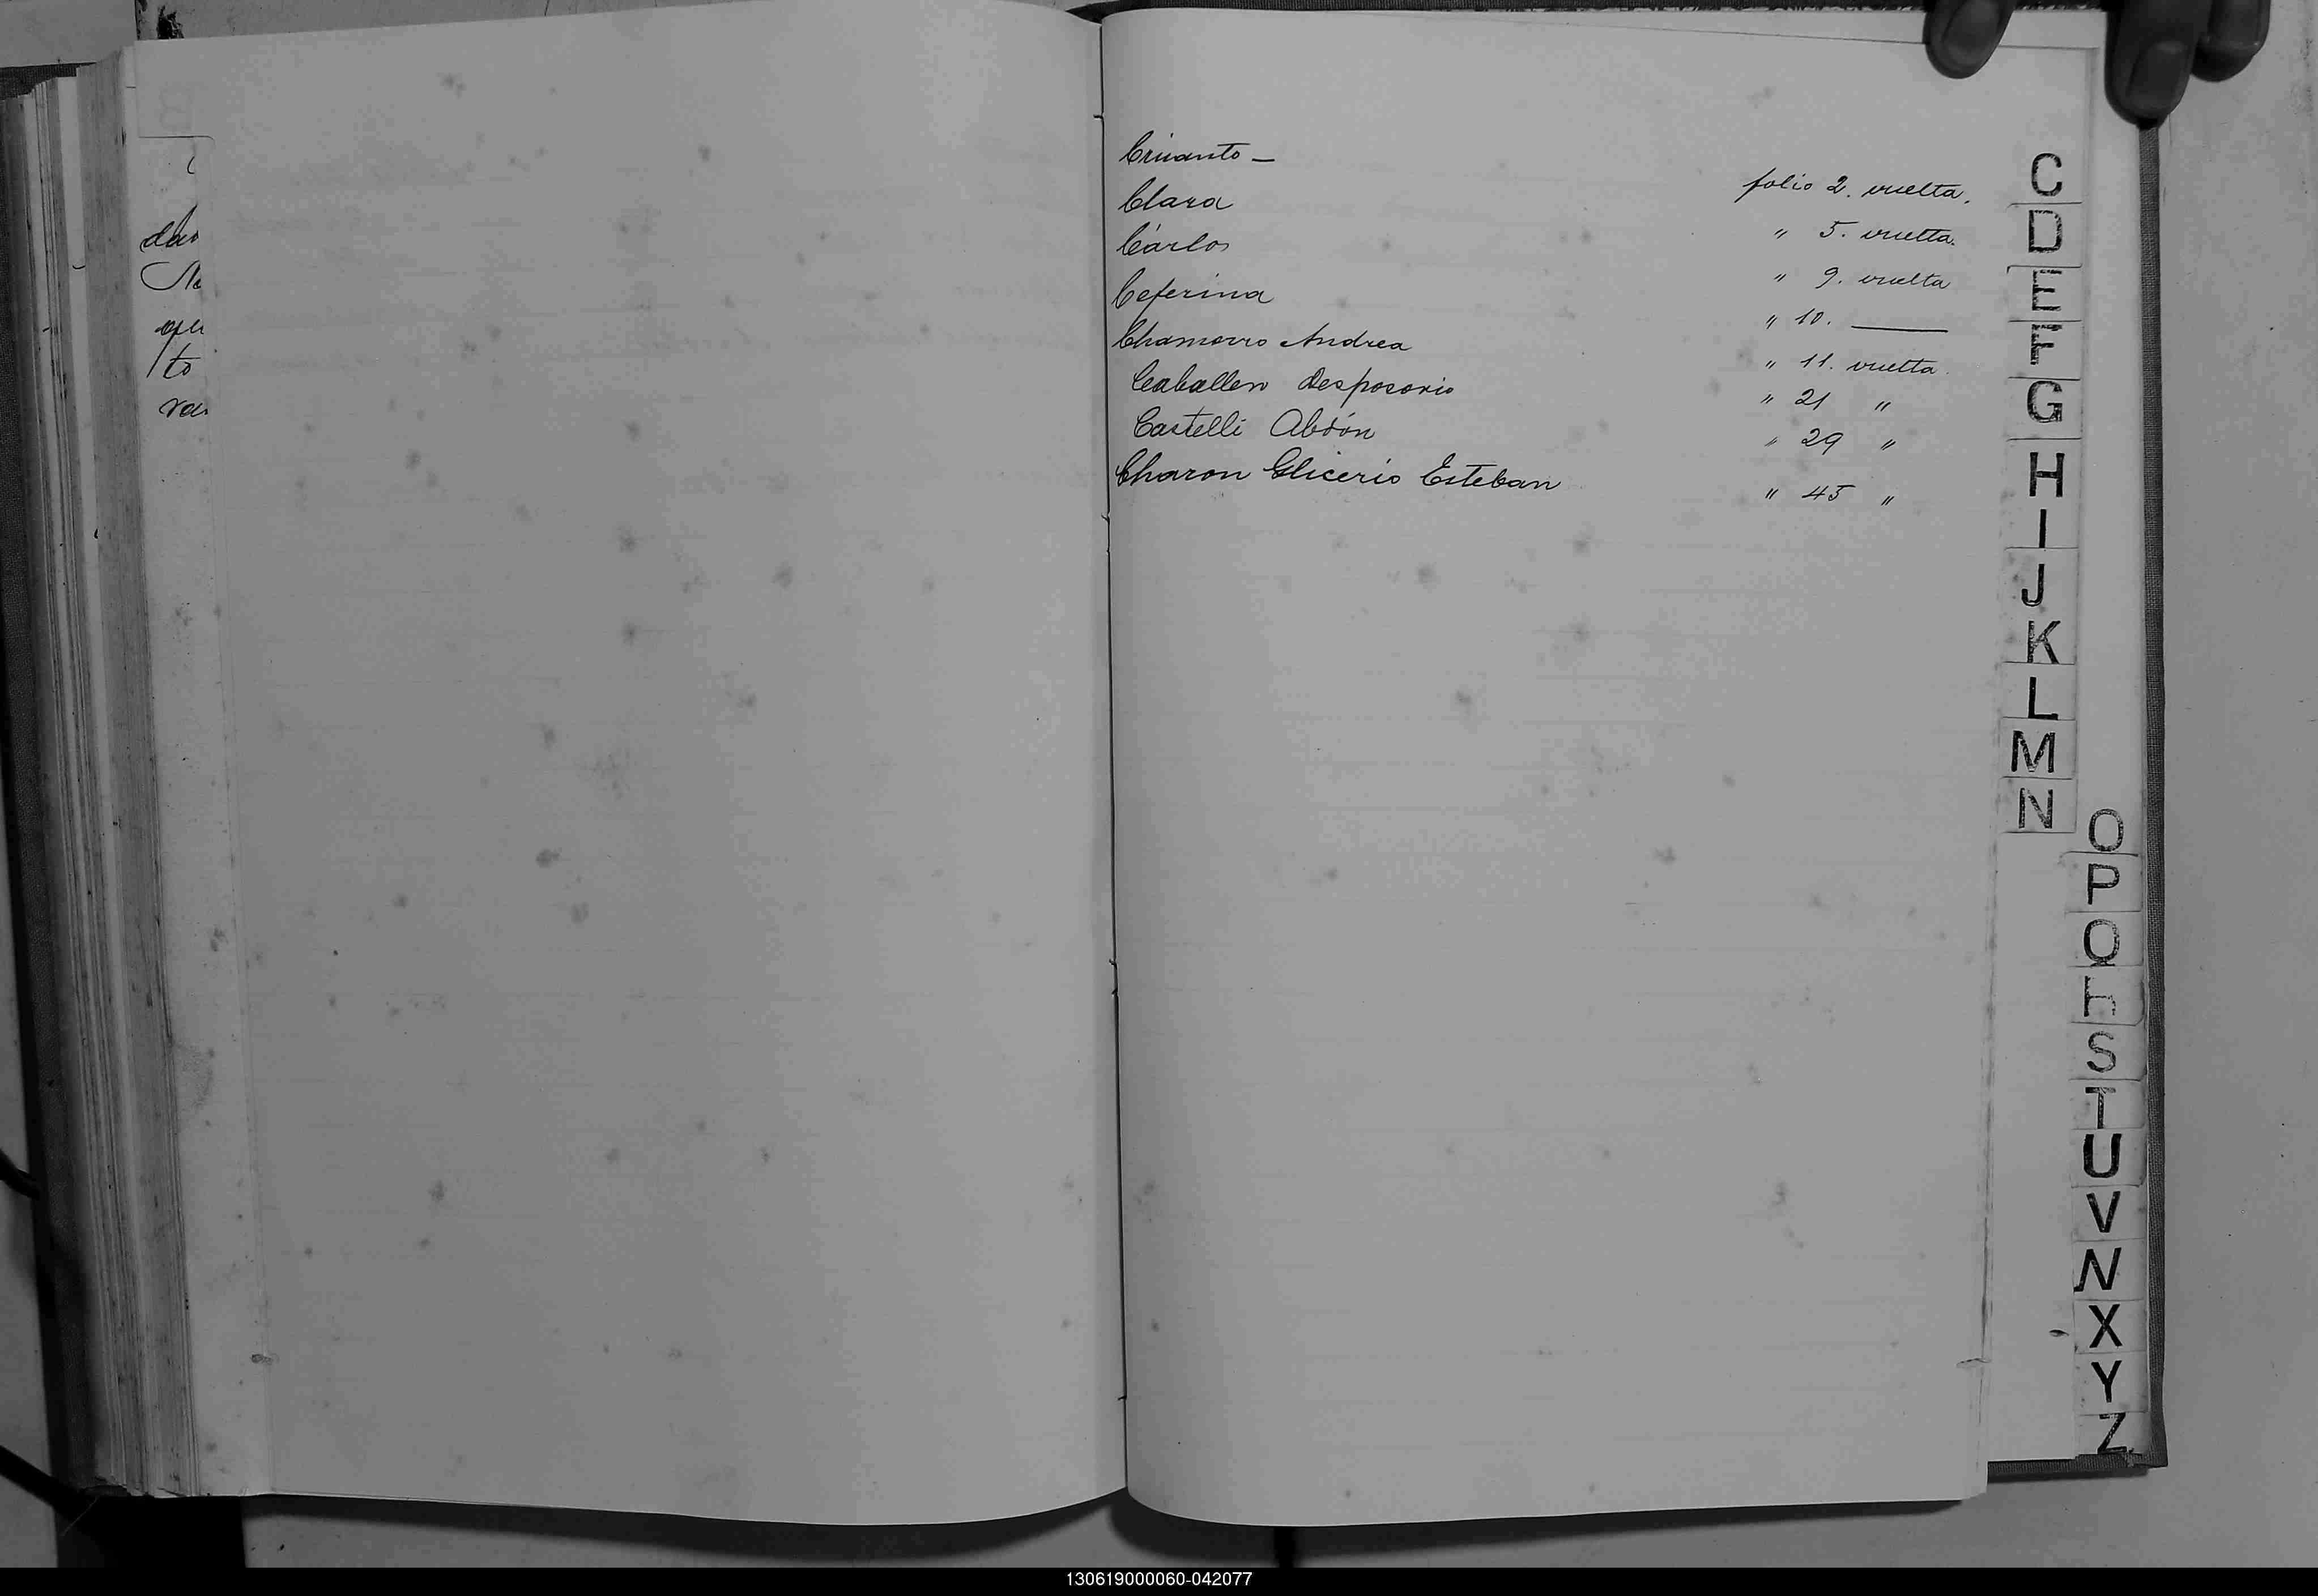 dar
to
Criianto — folio 2. vuelta.
Clara " 5. vuelta.
Cárlos " 9. vuelta
Ceferina " 10. ———
Chamorro Andrea " 11. vuelta.
Caballero Desposorio " 21 "
Castelli Abdón " 29 "
Charon Glicerio Esteban " 45 "
C
D
E
F
G
H
I
J
K
L
M
N
O
P
Q
R
S
T
U
V
X
Y
Z
130619000060-042077